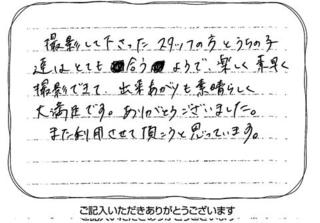 撮影して下さった スタッフの方とうちの子
達はとても 合う ようで、楽しく 素早く
撮影できて、出来あがりも素晴らしく
大満足です。ありがとうございました。
また利用させて頂こうと思っています。
ご記入いただきありがとうございます